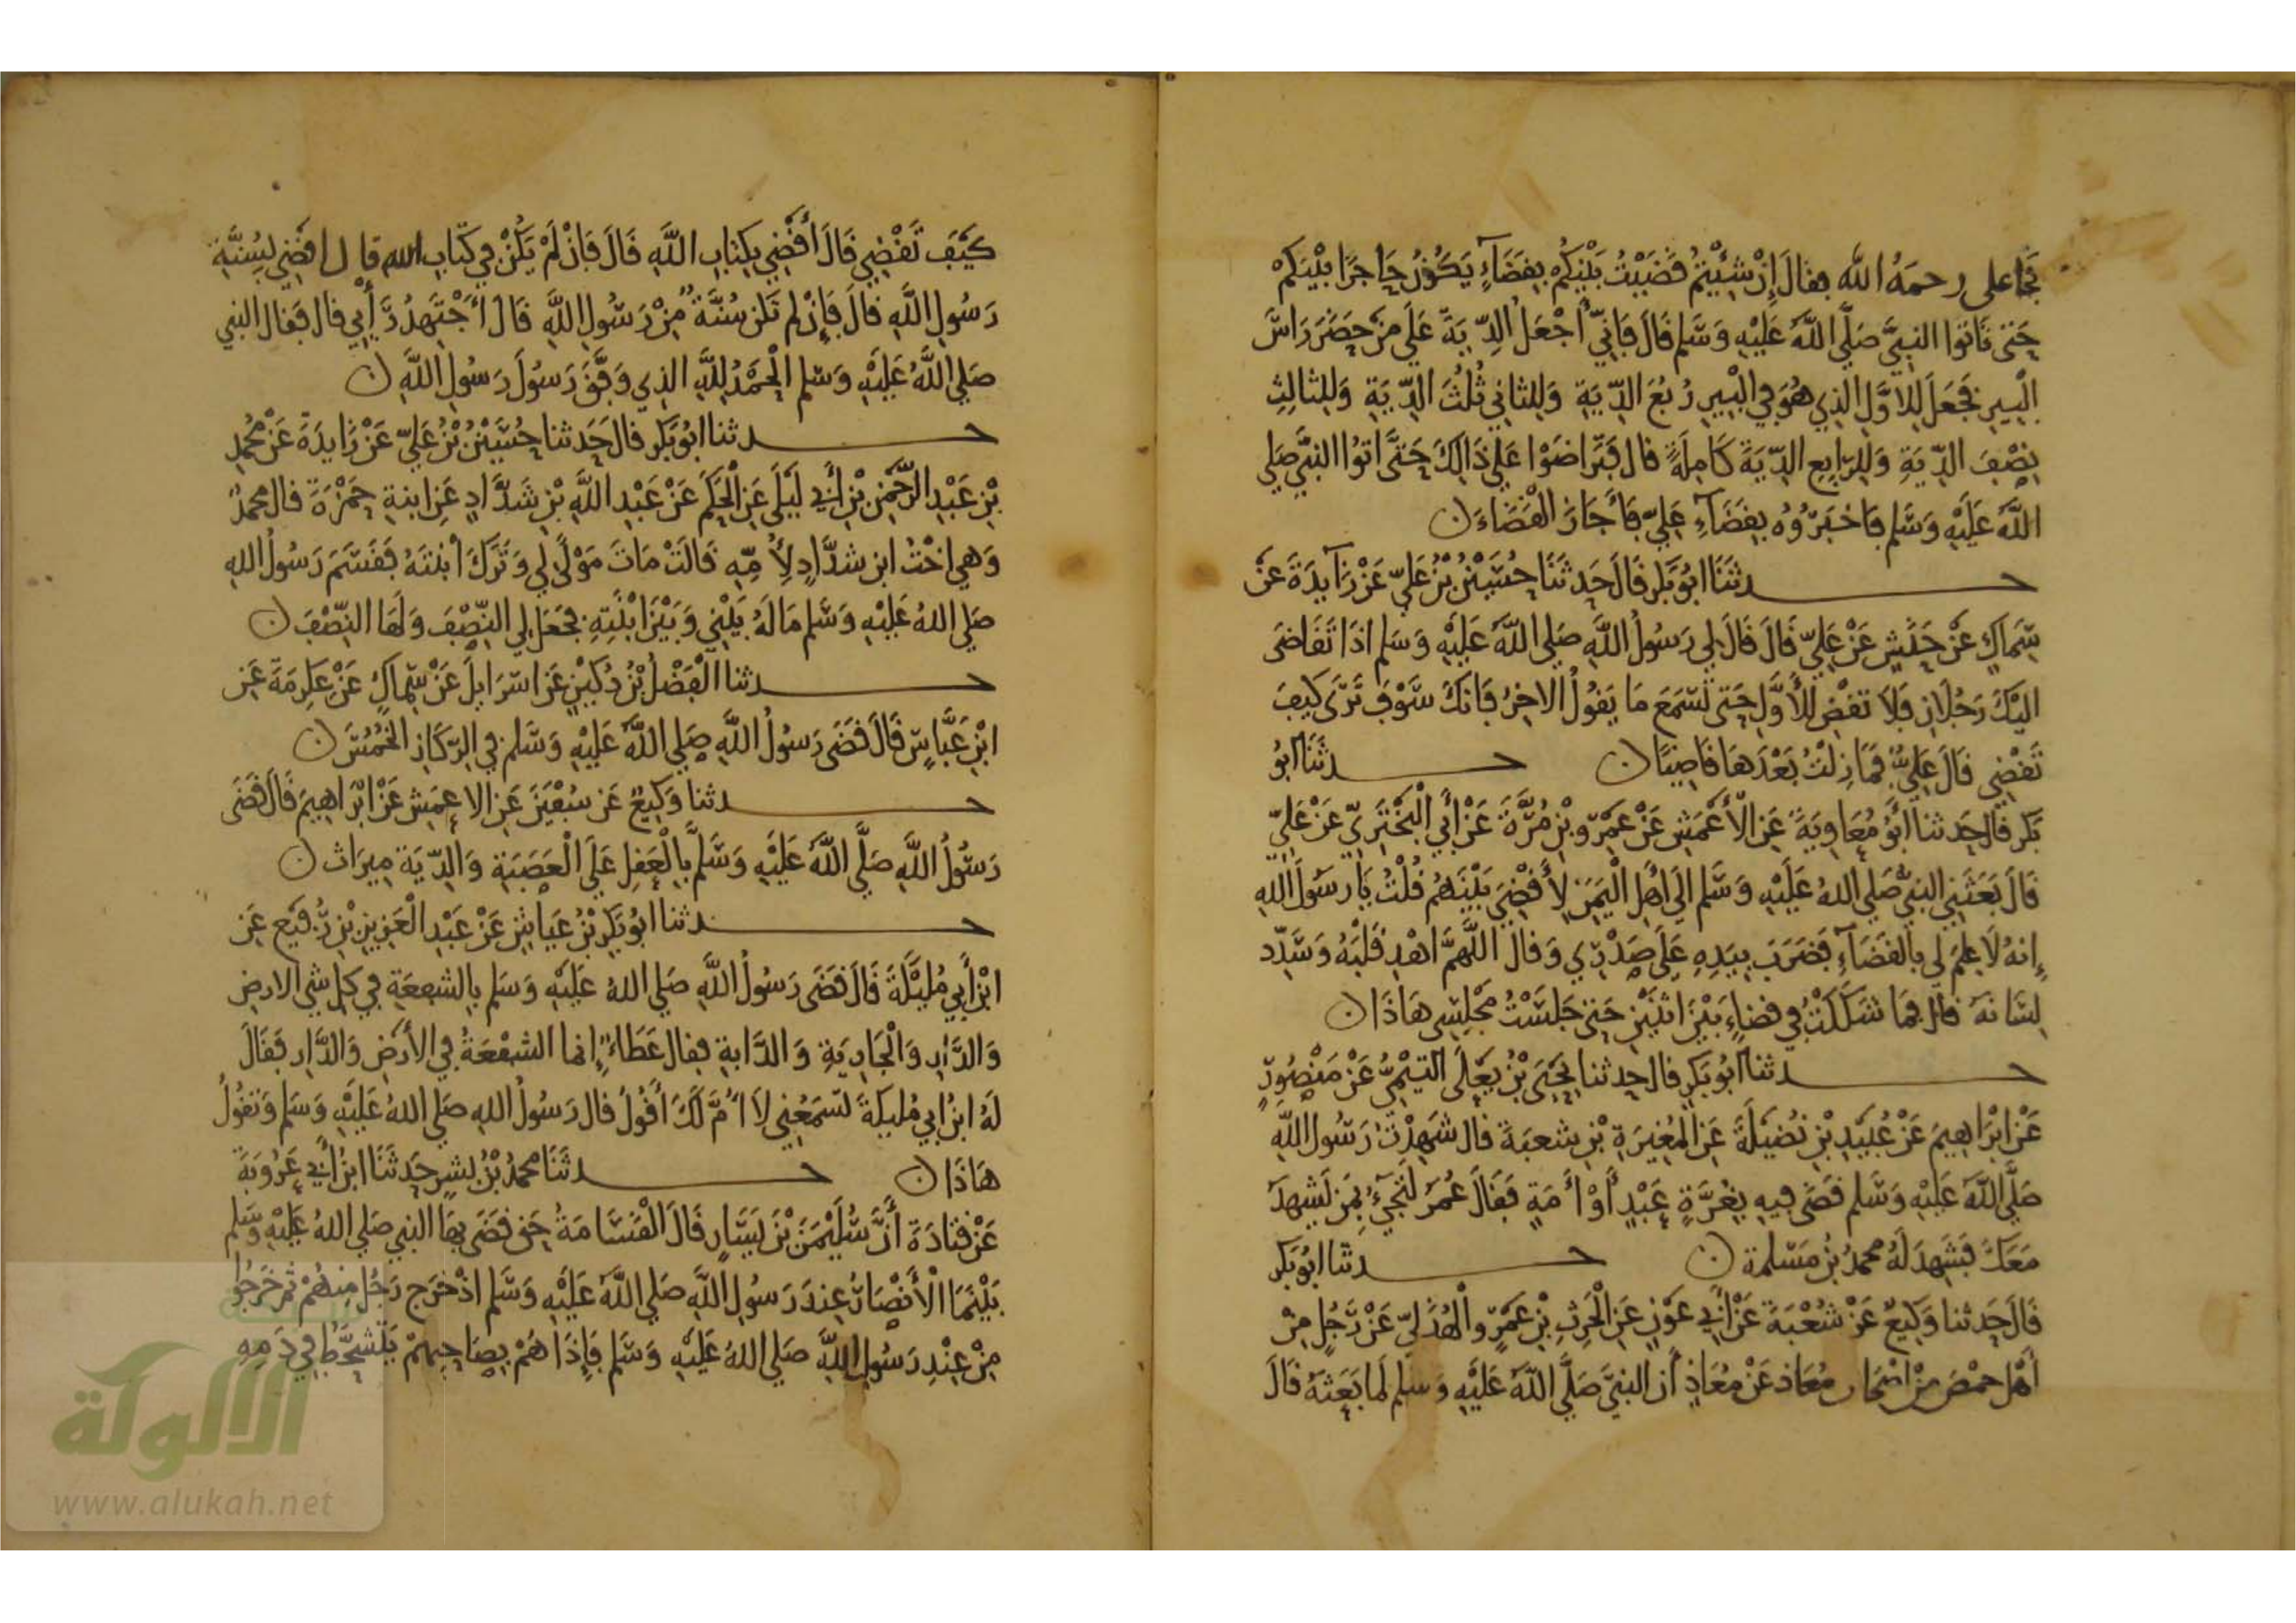 فجا على رحمهُ الله فقالَ إِنْ شِئْتُمْ قَضَيْتُ بَيْنَكُمْ بِقَضَآءٍ يَكُونُ حَاجِزًا بَيْنَكُمْ
حَتى تَاتوا النبِيَّ صَلَّى اللَّهُ عَلَيْهِ وَسَّلم قَالَ فَإِنِّي أَجْعَلُ الدِّيَةَ عَلَى مَنْ حَضَرَ رَاسَ
الْبِيرِ فَجَعَلَ لِلاوَّلِ الذِي هُوَ فِي الْبِيرِ رُبُعَ الدِّيَةِ وَلِلثانِي ثُلُثَ الدِّيَةِ وَلِلثالِثِ
نِصْفَ الدِّيَةِ وَلِلرّابِعِ الدِّيَةَ كَامِلَةً قالَ فَتَرَاضَوْا عَلى ذَالِكَ حَتَّى اتوُا النبِيَّ صَلى
اللَّهُ عَلَيْهِ وَسَّلم فَاخْبَرُوُهُ بِقَضَآءِ عَلِيٍّ فَأَجَازَ الْقَضَاءَ ن
حدثَنَا ابُو بَكر قَالَ حَدثَنَا حُسَيْنُ بْنُ عَلِيّ عَنْ زَآيدَةَ عَنْ
سِمَاكٍ عَنْ حَنَشٍ عَنْ عَلِيّ قَالَ قَالَ لِي رَسُولُ اللَّهِ صَلى اللَّهُ عَلَيْهِ وَسَلم اذَا تَقَاضَى
اليْكَ رَجُلَانِ فَلَا تقْضِ لِلأَوَّلِ حَتى تَسْمَعَ مَا يَقُولُ الاخِرُ فَانكَ سَّوْفَ تَرَى كَيفَ
تَقْضِي قَالَ عَلِيٌّ فَمَا زِلْتُ بَعْدَهَا قَاضِيًا ن حدثَنَا ابُو
بَكر قالَ حَدثنا أَبُو مُعَاوِيَةَ عَنِ الْأَعْمَشِ عَنْ عَمْرو بْنِ مُرَّةَ عَنْ أَبِي الْبَخْتَرِيّ عَنْ عَلِيّ
قَالَ بَعَثَنِي النبِيُّ صَلى اللهُ عَلَيْهِ وَسَّلم الَى اهْلِ الْيَمَنِ لِأَقْضِيَ بَيْنَهُمْ قُلْتُ يَا رسُولَ اللهِ
إِنهُ لَا عِلمَ لِي بِالقَضَآءِ فَضَرَبَ بِيَدِهِ عَلَى صَدْرِي وَقالَ اللَّهُمَّ اهْدِ قَلْبَهُ وَسَدِّد
لِسَانهَ قالَ فمَا شَكَكْتُ فِي قضاءٍ بَيْنَ اثنَيْنِ حَتى جَلَسْتُ مَجْلِسِى هَاذَا ن
حدثنا ابُو بَكرِ قالَ حدثنا يَحْيَى بْنُ يَعْلَى التيْمِيُّ عَنْ مَنْصُورٍ
عَنْ ابْرَاهِيمَ عَنْ عُبَيْدِ بْنِ نُضَيْلَةَ عَنِ الْمُغِيرَةِ بْنِ شعبَةَ قالَ شَهِدْتُ رَسُولَ اللهِ
صَلَّى اللَّهُ عَلَيْهِ وَسَّلم قَضَى فِيهِ بِغُرَّةٍ عَبْدٍ أَوْ أَمَةٍ فَقَالَ عُمَرُ لَتَجِيءُ بِمَنْ يَشْهدُ
مَعَكَ فَشَهِدَ لَهُ محمدُ بْنُ مَسْلمة ن حدثنا ابُو بَكر
قَالَ حَدثنا وَكِيعٌ عَنْ شُعْبَةَ عَنْ أَبِي عَوْنٍ عَنِ الْحَرِثِ بْنِ عَمْرٍو الْهُذَلِيّ عَنْ رَجُلٍ مِنْ
أَهْلِ حِمْصَ مِنْ اصْحَابِ مُعَاذ عَنْ مُعَاذٍ أَن النبيَّ صَلَّى اللَّهُ عَلَيْهِ وَسلم لَما بَعَثهُ قَالَ
كَيْفَ تَقْضِي قَالَ أَقْضِي بِكِتَابِ اللَّهِ قَالَ فَإِنْ لَمْ يَكُنْ فِي كتَابِ الله قال اقضِي بِسُنَّةِ
رَسُولِ اللَّهِ قالَ فَإِنْ لم تَكن سُنَّةٌ مِنْ رَسُولِ اللَّهِ قَالَ أَجْتَهِدُ رَأْيِي قال فَقالَ النبي
صَلى اللَّهُ عَلَيْهِ وَسَّلم الْحَمْدُ لِلَّهِ الذِي وَفَّقَ رَسُولَ رَسُولِ اللَّهِ ن
حدثنا ابُو بَكر قالَ حَدثنا حُسَيْنُ بْنُ عَلِيّ عَنْ زَايدَةَ عَنْ مُحمدِ
بْنِ عَبْدِ الرَّحْمنِ بْنِ أَبِي لَيْلَى عَنِ الْحَكَمِ عَنْ عَبْدِ اللَّهِ بْنِ شَدَّادٍ عَنِ ابنةِ حَمْزَةَ قال محمدٌ
وَهِي اخْتُ ابن شدَّادٍ لِأُمِّهِ قَالَتْ مَاتَ مَوْلًى لِي وَتَرَكَ ابْنَتَهُ فَقَسَمَ رَسُولُ اللهِ
صَلى اللهُ عَلَيْهِ وَسَّلم مَالَهُ بَيْنِي وَبَيْنَ ابْنَتِهِ فَجَعَلَ لِي النِّصْفَ وَلَهَا النِّصْفَ ن
حدثنا الْفَضْلُ بْنُ دُكَيْنٍ عَن اسْرَايلَ عَنْ سِمَاكٍ عَنْ عِكرِمَةَ عَنِ
ابْنِ عَبَّاسٍ قَالَ قَضَى رَسُولُ اللَّهِ صَلى اللَّهُ عَلَيْهِ وَسَّلم فِي الرِّكَازِ الْخُمُسَ ن
حدثنا وَكِيعٌ عَن سُفْيَنَ عَنِ الاعمَشِ عَنْ ابْرَاهِيمَ قَالَ قَضَى
رَسُولُ اللَّهِ صَلَّى اللَّهُ عَلَيْهِ وَسَّلَّمَ بِالْعَقلِ عَلَى الْعَصَبَةِ وَالدِّيَةَ مِيرَاث ن
حدثنا ابُو بَكرِ بْنُ عَيَاشٍ عَنْ عَبْدِ الْعَزِيزِ بْنِ رُفَيْعٍ عَنِ
ابْنِ أَبِي مُلَيْكَةَ قَالَ قَضَى رَسُولُ اللَّهِ صَلى اللهُ عَلَيْهِ وَسَلم بِالشفعَةِ فِي كل شي الارضِ
وَالدَّارِ وَالْجَارِيَةِ وَالدَّابةِ فقال عَطَاءٌ إِنما الشفْعَةُ فِي الأَرْضِ وَالدَّارِ فَقَالَ
لَهُ ابنُ ابِي مُليكةَ تَسْمَعُنِي لَا أُمَّ لَكَ أَقُولُ قال رَسُولُ اللهِ صَلى اللهُ عَلَيْهِ وَسَلم وَتقُولُ
هَاذَا ن حدثَنَا محمدُ بْنُ بِشرٍ حَدثَنَا ابنُ أَبِي عَرُوبَةَ
عَنْ قتادَةَ أَنَّ سُّلَيْمَنَ بْنَ يَسَارٍ قَالَ الْقَسَامَةُ حَق قضَى بهَا النبي صَلى اللهُ عَلَيْهِ وَسَّلم
بَيْنَمَا الْأَنْصَارُ عِندَ رَسُولِ اللَّهِ صَلى اللَّهُ عَلَيْهِ وَسَّلم اذْ خَرَج رَجُل مِنهُمْ ثمَّ خَرَجُوا
مِنْ عِنْدِ رَسُولِ اللَّهِ صَلى اللهُ عَلَيْهِ وَسَّلم فَإِذَا هُمْ بِصَاحِبِهِمْ يَتَشَحَّطُ فِي دَمِهِ
الألوكة
www.alukah.net